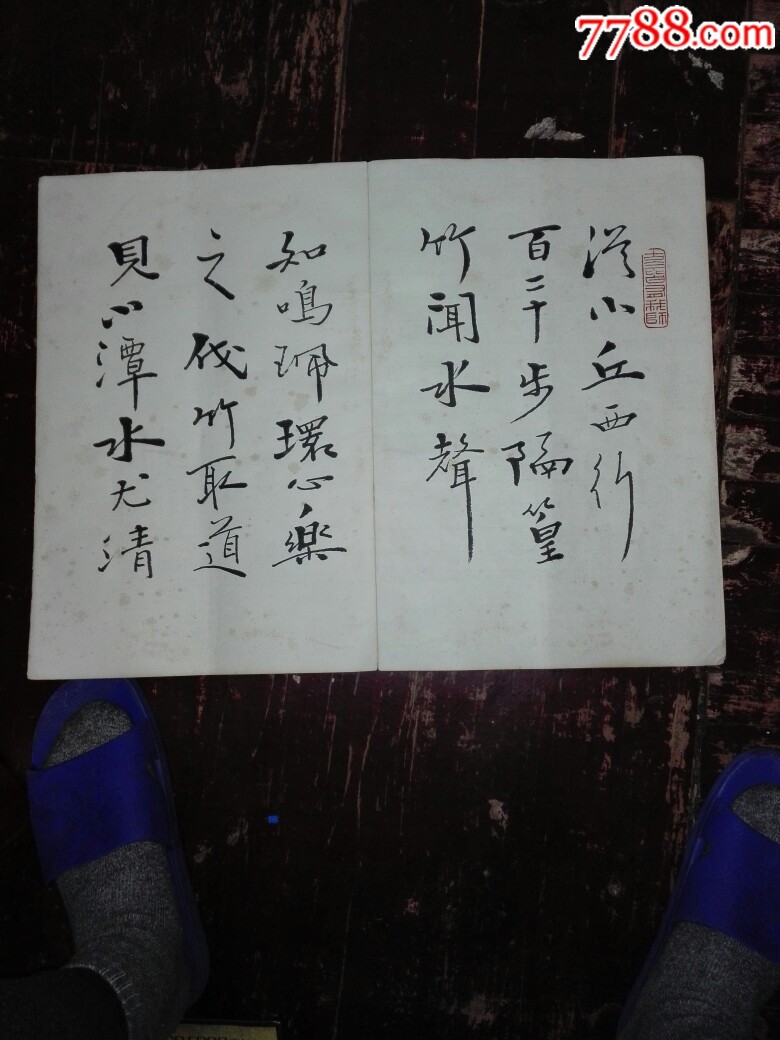 7788.com
從小丘西行
百二十步隔篁
竹聞水聲
知鳴珮環心樂
之伐竹取道
見小潭水尤清